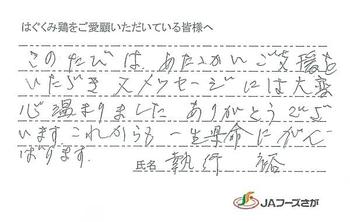 はぐくみ鶏をご愛顧いただいている皆様へ
このたびは、あたたかいご支援を
いただき又メッセージには大変
心温まりました ありがとうござ
います これからも一生懸命にがん
ばります。
氏名 執行 裕
JAフーズさが